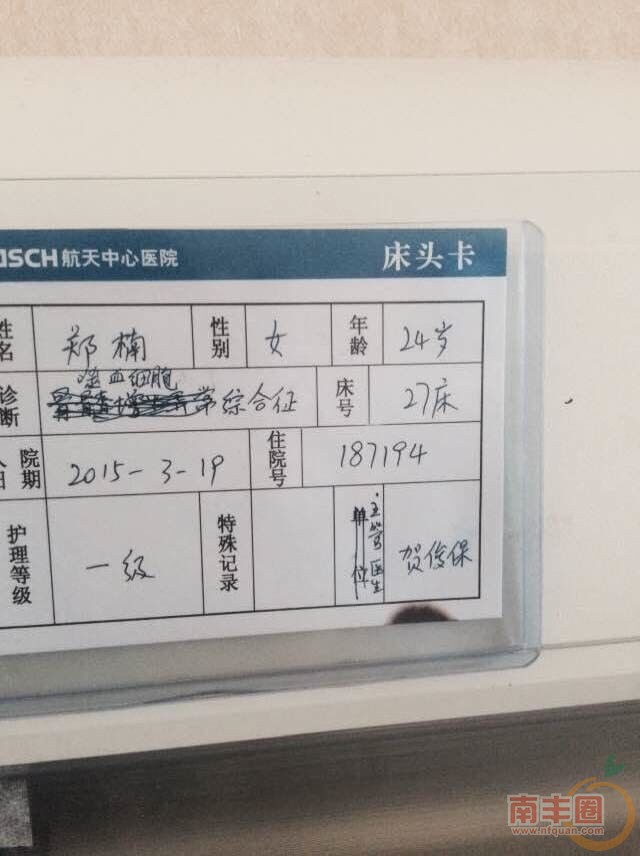 SCH 航天中心医院 床头卡
姓名 郑楠 性别 女 年龄 24岁
噬血细胞
诊断 综合征 床号 27床
院期 2015-3-19 住院号 187194
护理等级 一级 特殊记录 单位 主管医生 贺俊保
南丰圈
www.nfquan.com